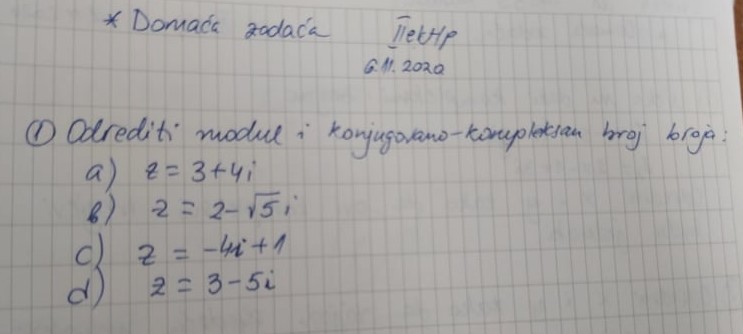 * Domaća zadaća IIekHP
6.11.2020
① Odrediti modul i konjugovano-kompleksan broj broja:
a) z = 3+4i
b) z = 2-√5 i
c) z = -4i+1
d) z = 3-5i